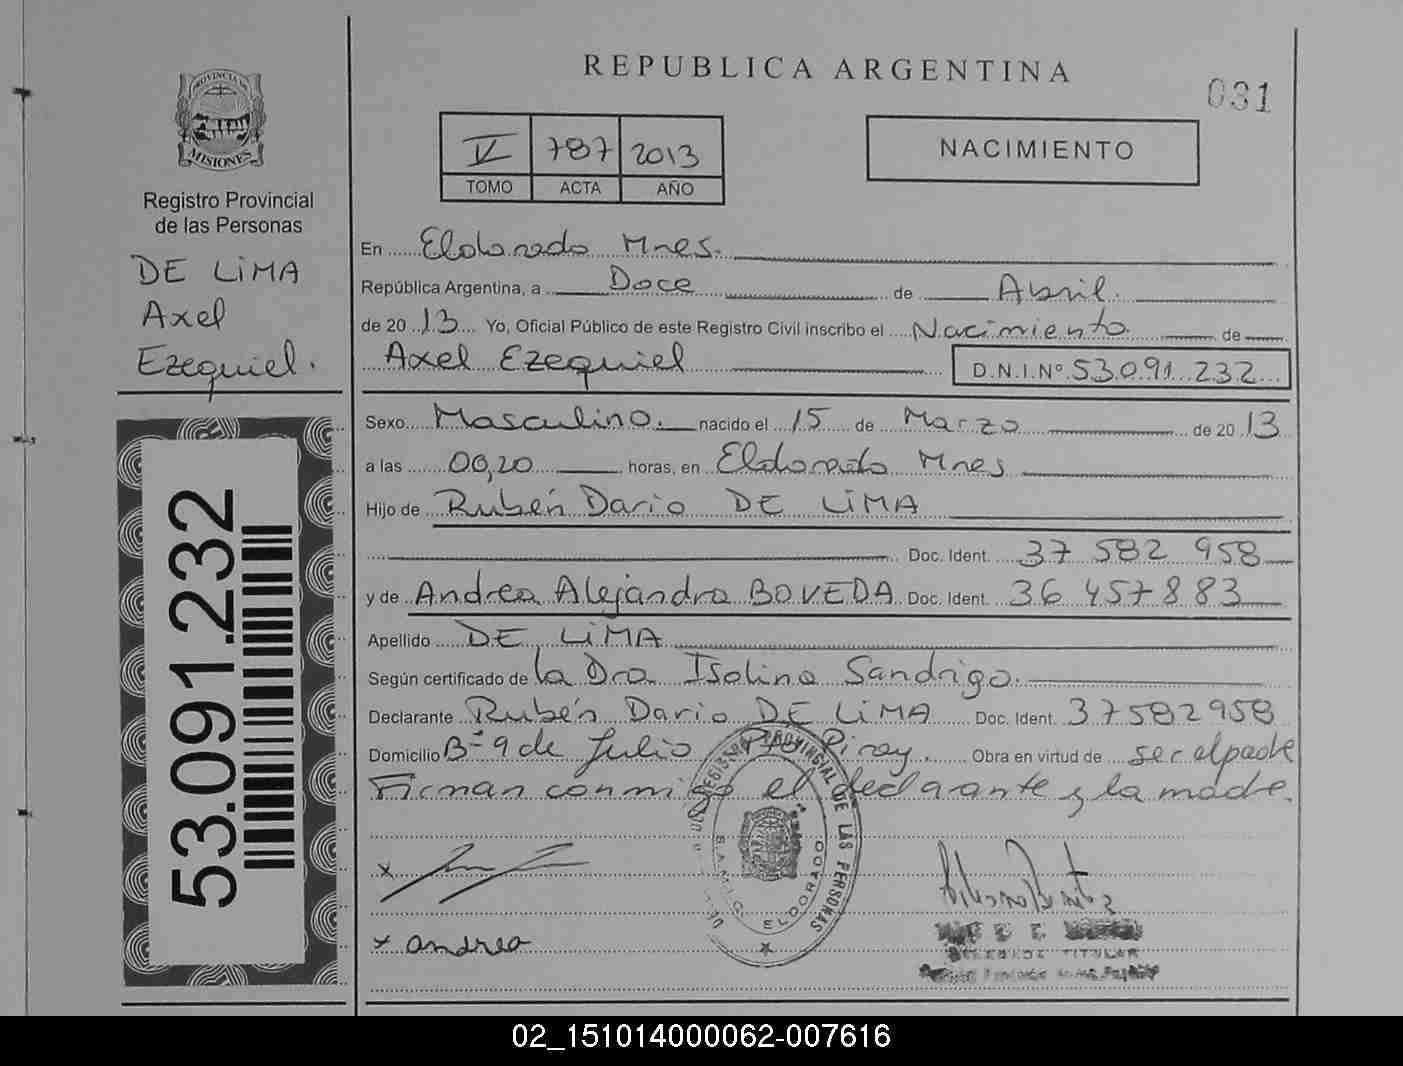 REPUBLICA ARGENTINA
031
PROVINCIA DE
MISIONES
Registro Provincial
de las Personas
DE LiMA
Axel
Ezequiel.
53.091.232
V 787 2013
TOMO ACTA AÑO
NACIMIENTO
En Eldorado Mnes.
República Argentina, a Doce de Abril.
de 20 13 Yo, Oficial Público de este Registro Civil inscribo el Nacimiento de
Axel Ezequiel D.N.I.Nº 53.091.232
Sexo Masculino. nacido el 15 de Marzo de 20 13
a las 00,20 horas, en Eldorado Mnes
Hijo de Rubén Dario DE LiMA
Doc. Ident. 37 582 958
y de Andrea Alejandra BOVEDA Doc. Ident. 36 457 883
Apellido DE LiMA
Según certificado de la Dra Isolina Sandrigo.
Declarante Rubén Dario DE LiMA Doc. Ident. 37582958
Domicilio Bº 9 de Julio Pto Piray. Obra en virtud de ser el padre
Firman conmigo el declarante y la madre.
REGISTRO PROVINCIAL DE LAS PERSONAS
ELDORADO
x
x andrea
TITULAR
02_151014000062-007616